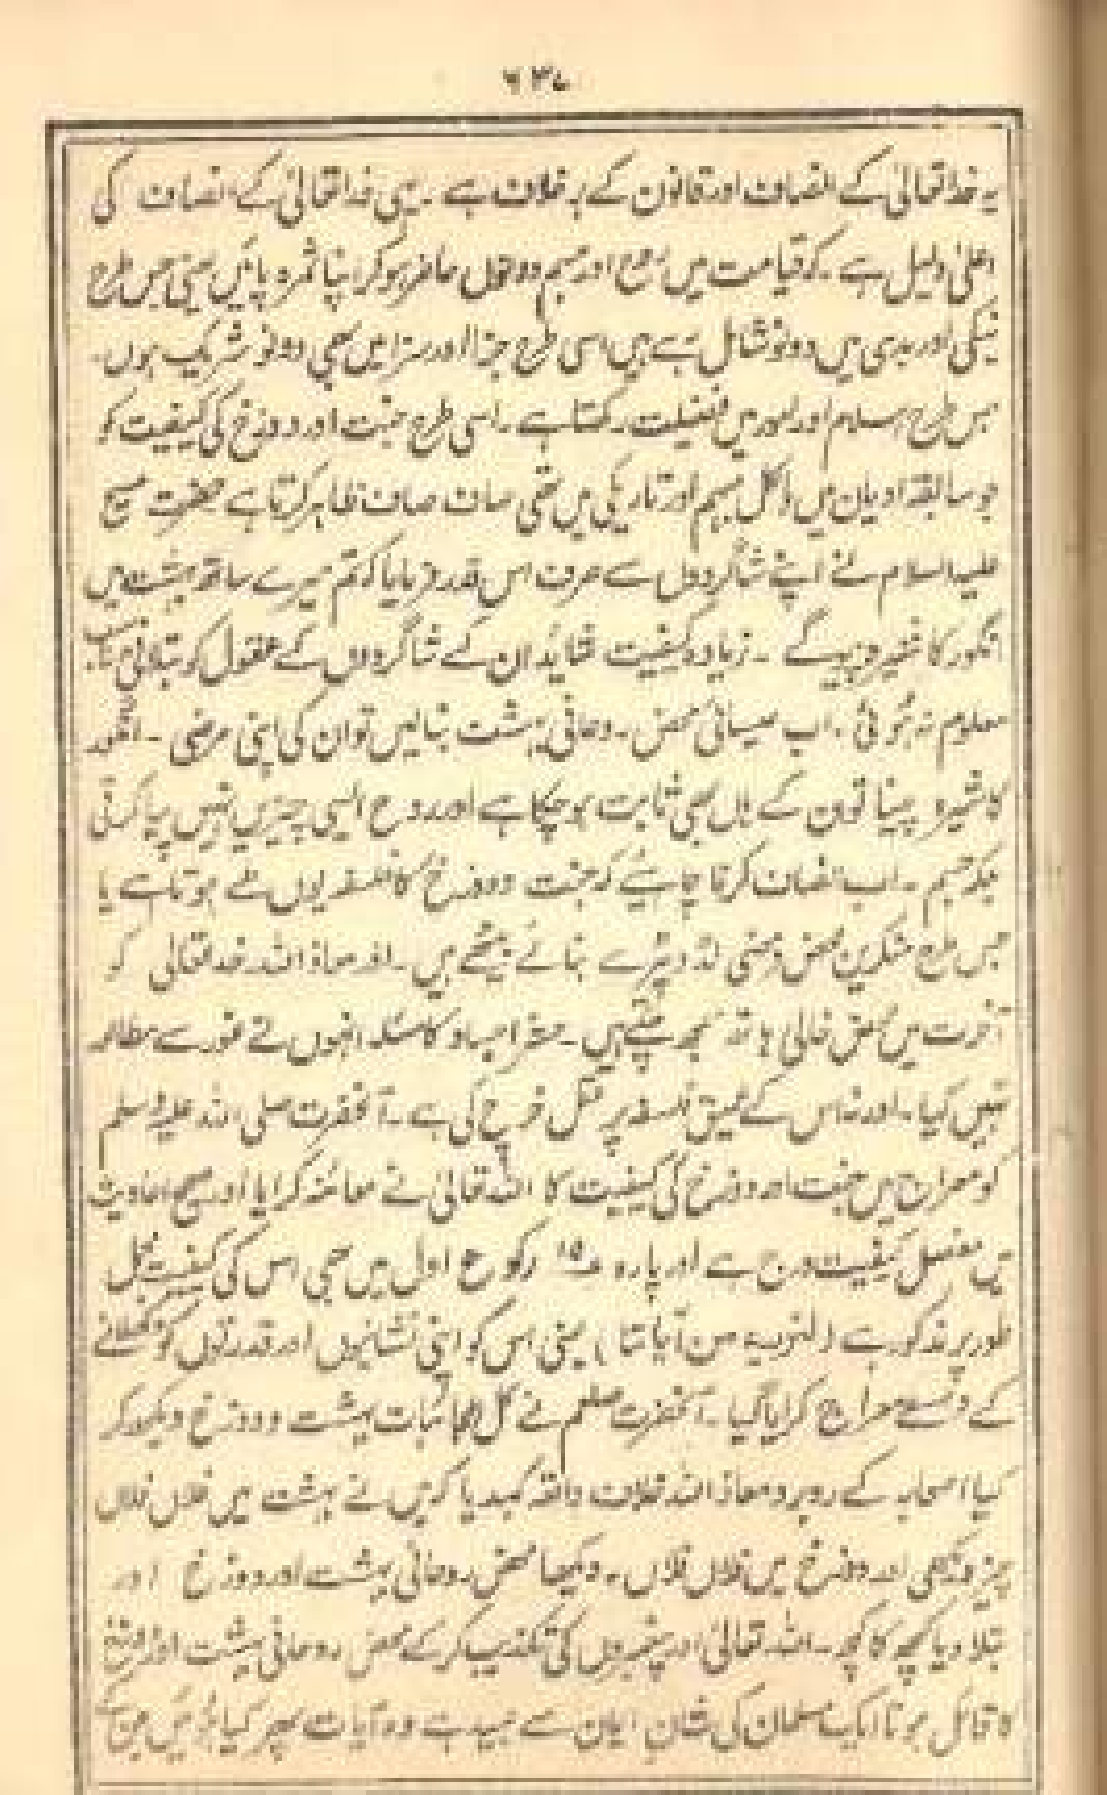 ۶۳۷
یہ خدا تعالیٰ کے انصاف اور قانون کے برخلاف ہے ۔ یہی خدا تعالیٰ کے انصاف کی
اعلیٰ دلیل ہے ۔ کہ قیامت میں روح اور جسم دونوں حاضر ہو کر اپنا ثمرہ پائیں یعنی جس طرح
نیکی اور بدی میں دونو شامل رہے ہیں اسی طرح جزا اور سزا میں بھی دونو شریک ہوں۔
جس طرح اسلام اور امور میں فضیلت رکھتا ہے ۔ اسی طرح جنت اور دوزخ کی کیفیت کو
جو سابقہ ادیان میں بالکل مبہم اور تاریکی میں تھی صاف صاف ظاہر کرتا ہے حضرت مسیح
علیہ السلام نے اپنے شاگردوں سے صرف اس قدر فرمایا کہ تم میرے ساتھ بہشت میں
انگور کا شیرہ پیو گے ۔ زیادہ کیفیت شاید ان کے شاگردوں کے عقول کو بتلانی مناسب
معلوم نہ ہوئی ۔ اب عیسائی محض روحانی بہشت بنالیں تو ان کی اپنی مرضی ۔ انگور
کا شیرہ پینا تو ان کے ہاں بھی ثابت ہو چکا ہے اور روح ایسی چیزیں نہیں پیا کرتی
بلکہ جسم ۔ اب انصاف کرنا چاہیئے کہ جنت و دوزخ کا فلسفہ یوں طے ہوتا ہے یا
جس طرح منکرین محض فرضی بنائے بیٹھے ہیں ۔ اور معاذ اللہ خدا تعالیٰ کو
آخرت میں مطلق خالی ہاتھ سمجھ بیٹھے ہیں ۔ حشر اجساد کا مسئلہ انہوں نے غور سے مطالعہ
نہیں کیا ۔ اور نہ اس کے عمیق فلسفہ پر عقل خرچ کی ہے ۔ آنحضرت صلی اللہ علیہ وسلم
کو معراج میں جنت اور دوزخ کی کیفیت کا اللہ تعالیٰ نے معائنہ کرایا اور صحیح احادیث
میں مفصل کیفیت درج ہے اور پارہ ۱۵ رکوع اول میں بھی اس کی کیفیت مجمل
طور پر مذکور ہے (لنریہ من آیاتنا) یعنی اس کو اپنی نشانیوں اور قدرتوں کو دکھلانے
کے واسطے معراج کرایا گیا ۔ آنحضرت صلعم نے کل عجائبات بہشت و دوزخ دیکھ کر
کیا اصحابہ کے روبرو معاذ اللہ خلاف واقعہ کہدیا کہ میں نے بہشت میں فلاں فلاں
چیز دیکھی اور دوزخ میں فلاں فلاں ۔ دیکھا محض روحانی بہشت اور دوزخ اور
بتلا دیا کچھ کا کچھ ۔ اللہ تعالیٰ اور پیغمبروں کی تکذیب کر کے محض روحانی بہشت اور دوزخ
کا قائل ہونا ایک مسلمان کی شان ایمان سے بعید ہے وہ آیات پھر کیا ہوئیں جن